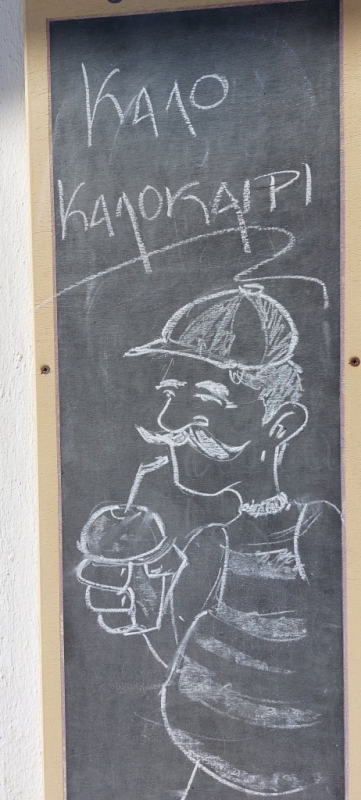 ΚΑΛΟ
ΚΑΛΟΚΑΙΡΙ